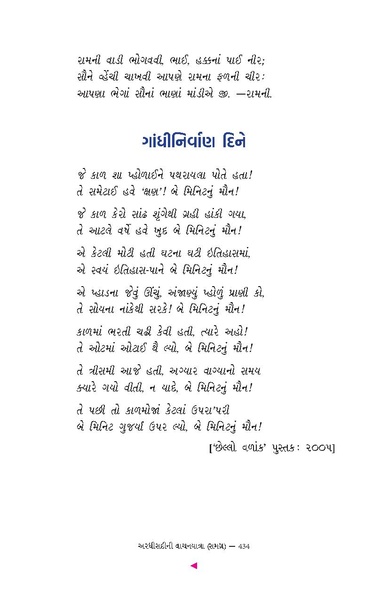 રામની વાડી ભોગવવી, ભાઈ, હક્કનાં પાઈ નીર;
સૌને વ્હેંચી ચાખવી આપણે રામના ફળની ચીરઃ
આપણા ભેગાં સૌનાં ભાણાં માંડીએ જી. —રામની.
ગાંધીનિર્વાણ દિને
જે કાળ શા પ્હોળાઈને પથરાયલા પોતે હતા!
તે સમેટાઈ હવે ‘ક્ષણ’! બે મિનિટનું મૌન!
જે કાળ કેરો સાંઢ શૃંગેથી ગ્રહી હાંકી ગયા,
તે આટલે વર્ષે હવે ખુદ બે મિનિટનું મૌન!
એ કેટલી મોટી હતી ઘટના ઘટી ઇતિહાસમાં,
એ સ્વયં ઇતિહાસ-પાને બે મિનિટનું મૌન!
એ પ્હાડના જેવું ઊંચું, અંજાણ્યું પ્હોળું પ્રાણી કો,
તે સોયના નાંકેથી સરકે! બે મિનિટનું મૌન!
કાળમાં ભરતી ચઢી કેવી હતી, ત્યારે અહો!
તે ઓટમાં ઓટાઈ થૈ લ્યો, બે મિનિટનું મૌન!
તે ત્રીસમી આજે હતી, અગ્યાર વાગ્યાનો સમય
ક્યારે ગયો વીતી, ન યાદે, બે મિનિટનું મૌન!
તે પછી તો કાળમોજાં કેટલાં ઉપરા’પરી
બે મિનિટ ગુજર્યા ઉપર લ્યો, બે મિનિટનું મૌન!
[‘છેલ્લો વળાંક’ પુસ્તક: ૨૦૦૫]
અરધીસદીની વાચનયાત્રા (સમગ્ર) — 434